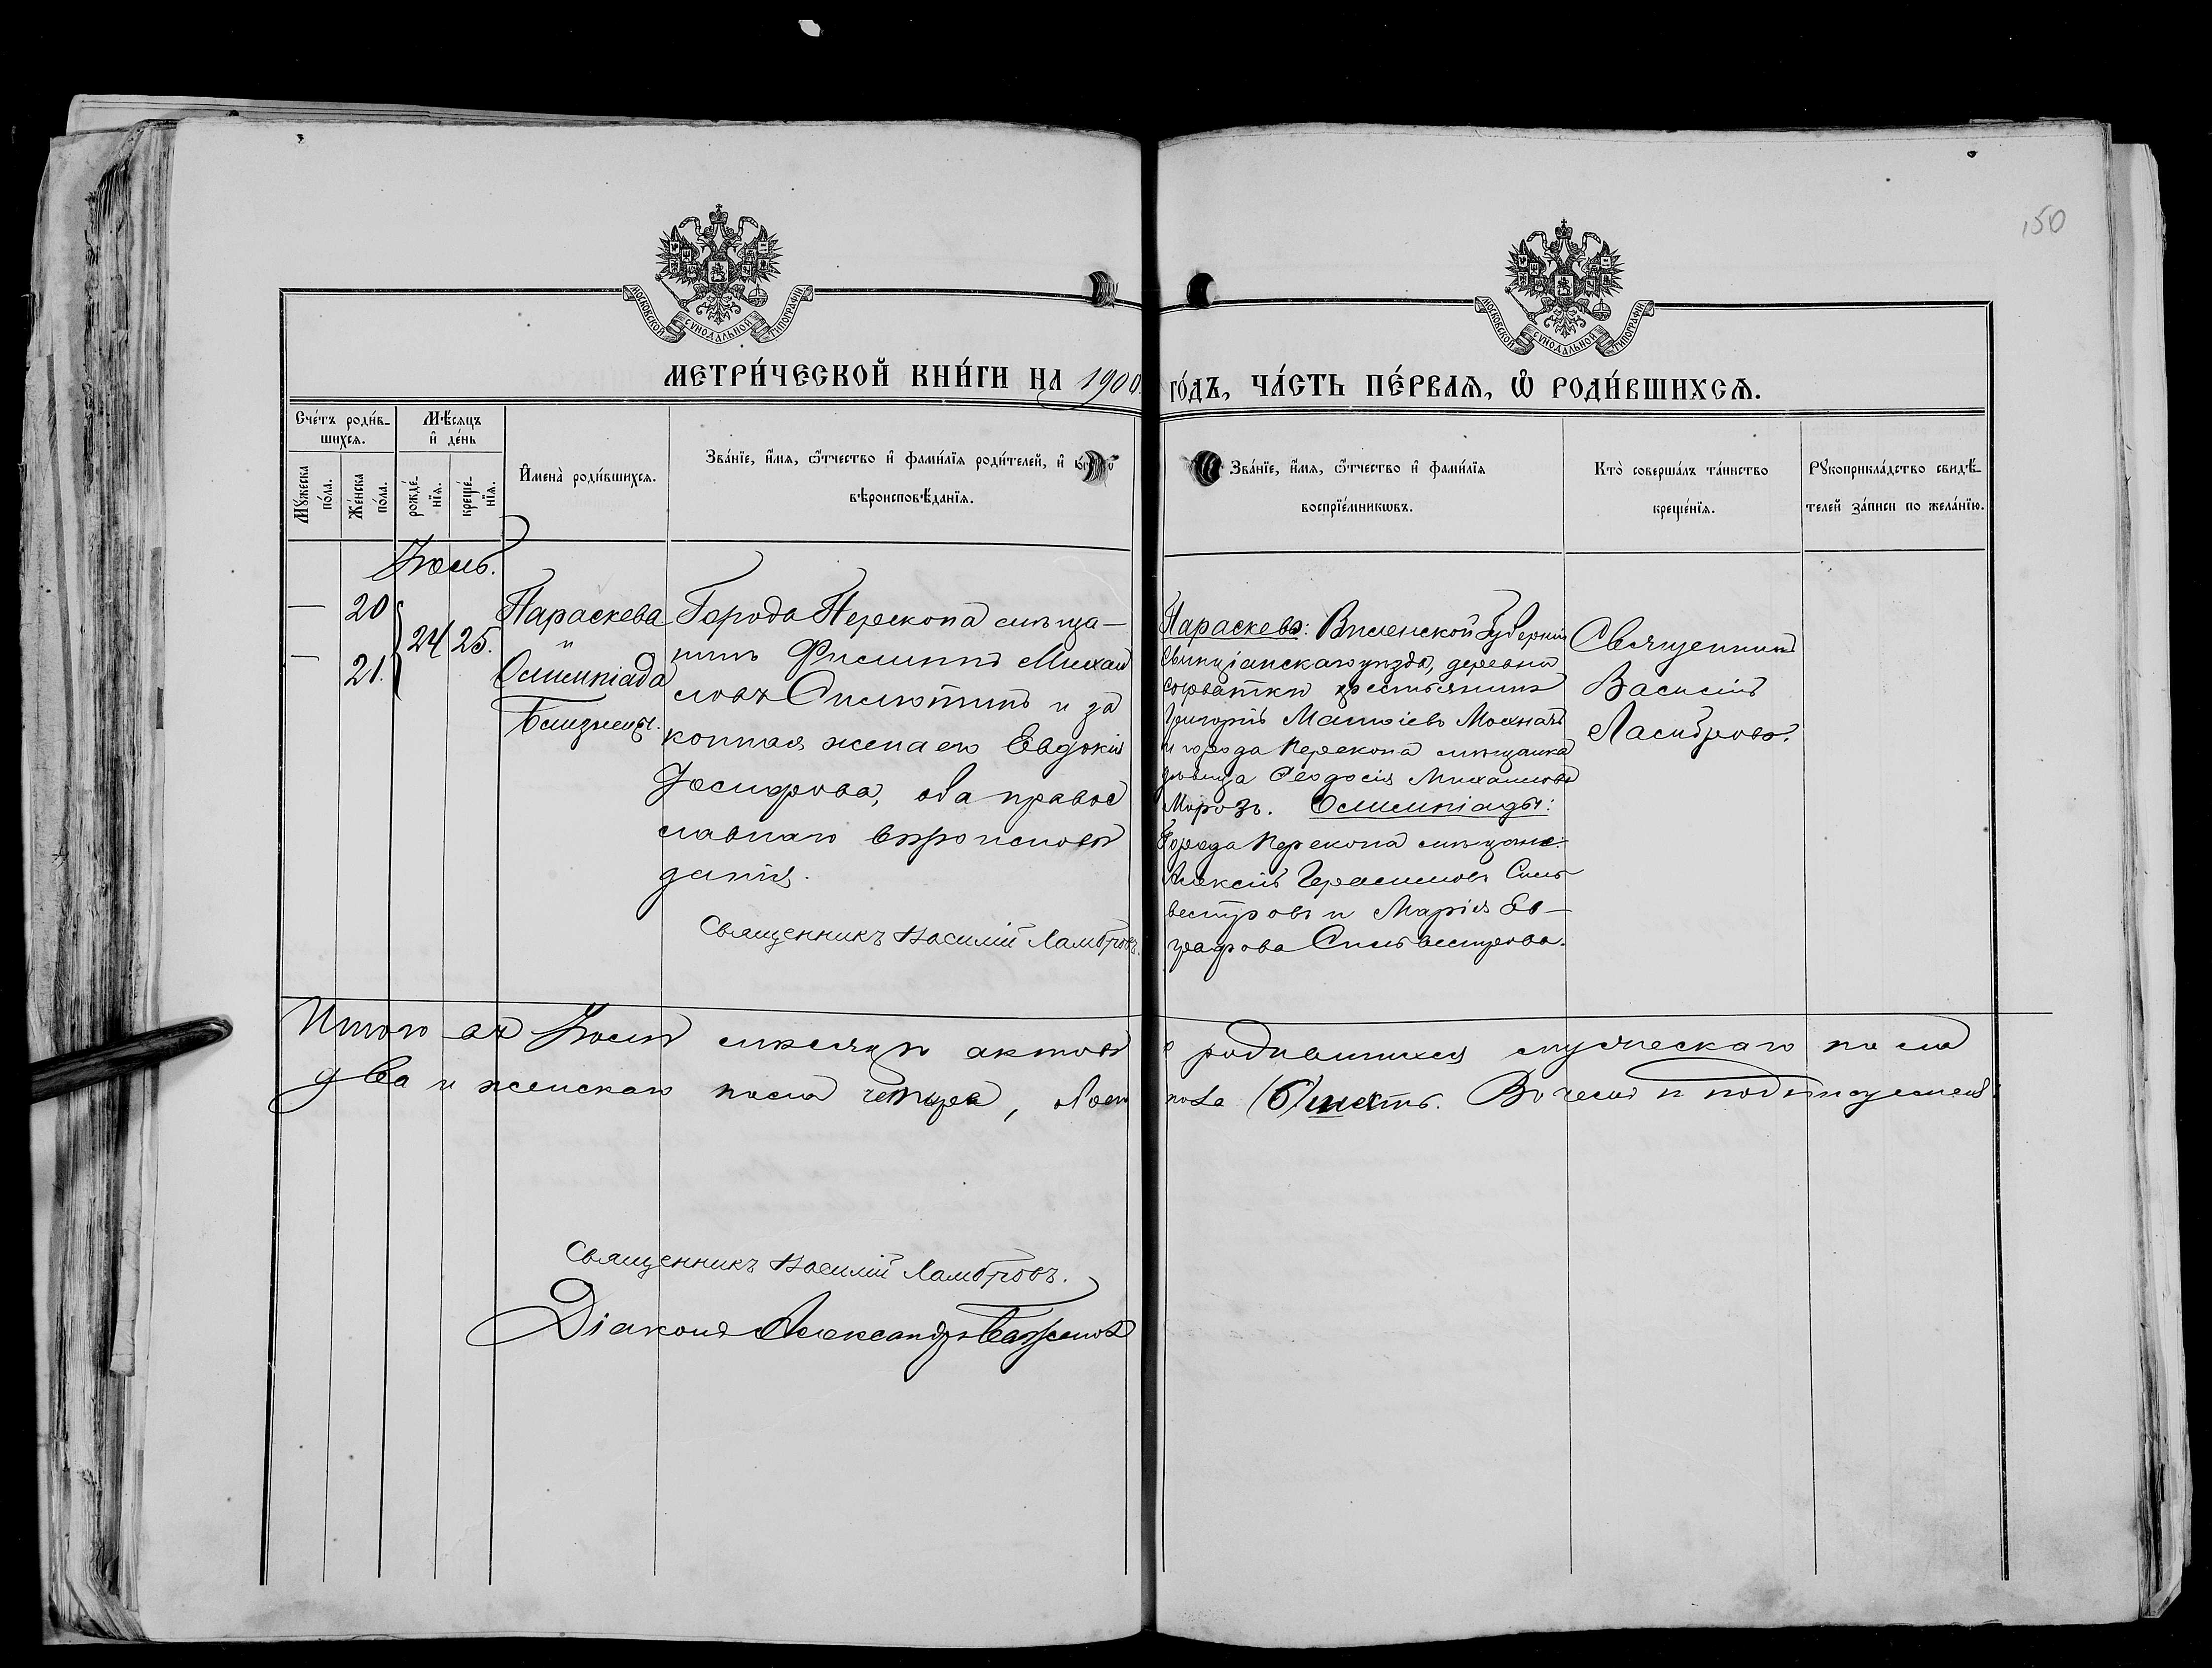 150
МОСКОВСКОЙ СѴНОДАЛЬНОЙ ТИПОГРАФІИ
МОСКОВСКОЙ СѴНОДАЛЬНОЙ ТИПОГРАФІИ
МЕТРИ́ЧЕСКОЙ КНИ́ГИ НА 1900 ГО́ДЪ, ЧА́СТЬ ПЕ́РВАЯ, Ѽ РОДИ́ВШИХСѦ.
Сче́тъ роди́в-
шихсѧ.
Мѣ́сяцъ
и҆ де́нь
Мꙋ́жеска
по́ла.
Же́нска
по́ла.
рожде́-
нїѧ.
креще́-
нїѧ.
И҆мена̀ роди́вшихсѧ.
Зва́нїе, и҆́мѧ, ѻ҆́тчество и҆ фами́лїѧ роди́телей, и҆
вѣроисповѣ́данїѧ.
Зва́нїе, и҆́мѧ, ѻ҆́тчество и҆ фами́лїѧ
воспрїе́мникѡвъ.
Кто̀ соверша́лъ та́инство
креще́нїѧ.
Рꙋкоприкла́дство свидѣ́-
телей за́писи по жела́нїю.
— 20
— 21.
24 25.
Параскева
и
Олимпіада
Близнецы.
Города Перекопа мѣща-
нинъ Филиппъ Михаи
ловъ и за
конная жена его Евдокія
Іосифова, оба правос
лавнаго вѣроисповѣ
данія.
Священникъ Василій Ламбровъ.
Параскевы: Виленской губерніи
Свенціанскаго уѣзда, деревни
крестьянинъ
Григорій
и города Перекопа мѣщанка
дѣвица Ѳеодосія Михаилова
Морозъ. Олимпіады:
Города Перекопа мѣщане:
Алексій Герасимовъ Силь
вестровъ и Марія Ев-
графова Сильвестрова.
Священникъ
Василій
Ламбровъ.
Итого въ мѣсяцѣ актовъ о родившихся мужескаго пола
два и женскаго пола четыре, обоего пола (6) шесть. Въ чемъ и подписуемся:
Священникъ Василій Ламбровъ.
Діаконъ Александръ Баженовъ